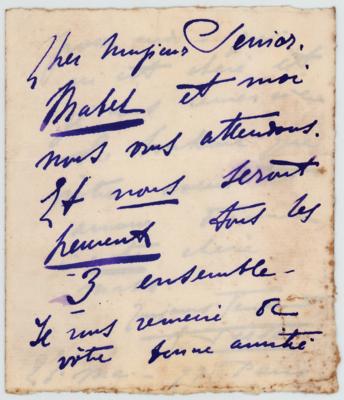 Cher Monsieur Senior.
Mabel et moi
nous vous attendons.
Et nous serons
tous les
3 ensemble -
Je vous remercie de
votre bonne amitié